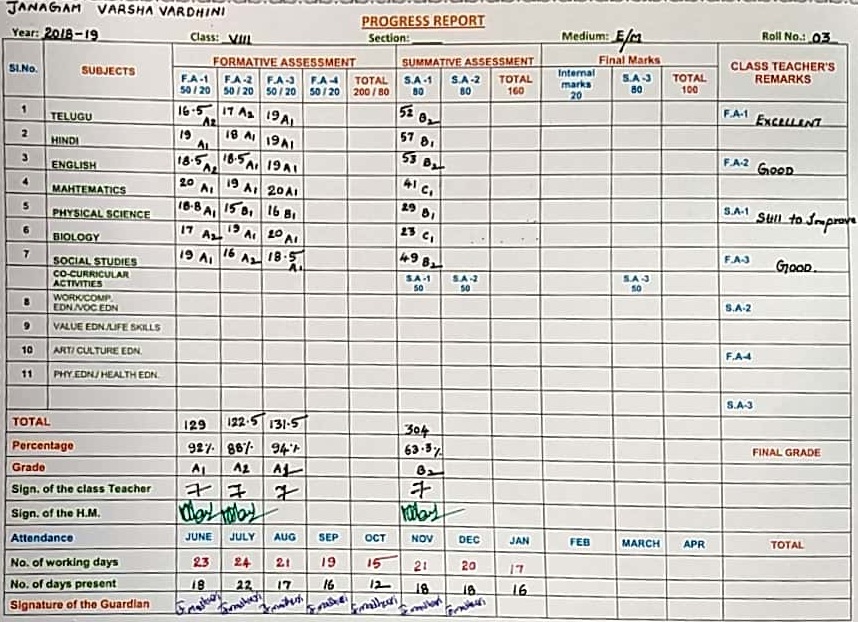 JANAGAM VARSHA VARDHINI
PROGRESS REPORT
Year: 2018-19 Class: VIII Section: Medium: E/M Roll No.: 03
Sl.No. SUBJECTS FORMATIVE ASSESSMENT SUMMATIVE ASSESSMENT Final Marks CLASS TEACHER'S REMARKS
F.A-1 50 / 20 F.A-2 50 / 20 F.A-3 50 / 20 F.A-4 50 / 20 TOTAL 200 / 80 S.A-1 80 S.A-2 80 TOTAL 160 Internal marks 20 S.A-3 80 TOTAL 100
1 TELUGU 16.5 A2 17 A2 19 A1 52 B2 F.A-1 EXCELLENT
2 HINDI 19 A1 18 A1 19 A1 57 B1
3 ENGLISH 18.5 A2 18.5 A1 19 A1 53 B2 F.A-2 GOOD
4 MAHTEMATICS 20 A1 19 A1 20 A1 41 C1
5 PHYSICAL SCIENCE 18.8 A1 15 B1 16 B1 29 B1 S.A-1 Still to Improve
6 BIOLOGY 17 A2 19 A1 20 A1 23 C1
7 SOCIAL STUDIES 19 A1 16 A2 18.5 A1 49 B2 F.A-3 GOOD.
CO-CURRICULAR ACTIVITIES S.A -1 50 S.A -2 50 S.A -3 50
8 WORK/COMP. EDN./VOC.EDN S.A-2
9 VALUE EDN./LIFE SKILLS
10 ART/ CULTURE EDN. F.A-4
11 PHY.EDN./ HEALTH EDN.
S.A-3
TOTAL 129 122.5 131.5 304
Percentage 92% 88% 94% 63.3% FINAL GRADE
Grade A1 A2 A1 B2
Sign. of the class Teacher
Sign. of the H.M.
Attendance JUNE JULY AUG SEP OCT NOV DEC JAN FEB MARCH APR TOTAL
No. of working days 23 24 21 19 15 21 20 17
No. of days present 18 22 17 16 12 18 18 16
Signature of the Guardian